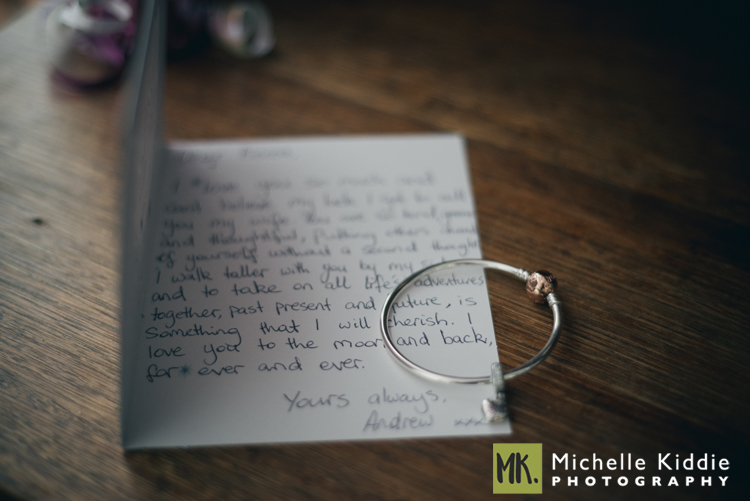 I love you so much and
cant believe my luck I get to call
you my wife. You are so kind,
and thoughtful, putting others
of yourself without a second thought
I walk taller with you by my
and to take on all life's adventures
together, past present and future, is
Something that I will cherish. I
love you to the moon and back,
for ever and ever.
Yours always,
Andrew xxx
MK.
Michelle Kiddie
PHOTOGRAPHY